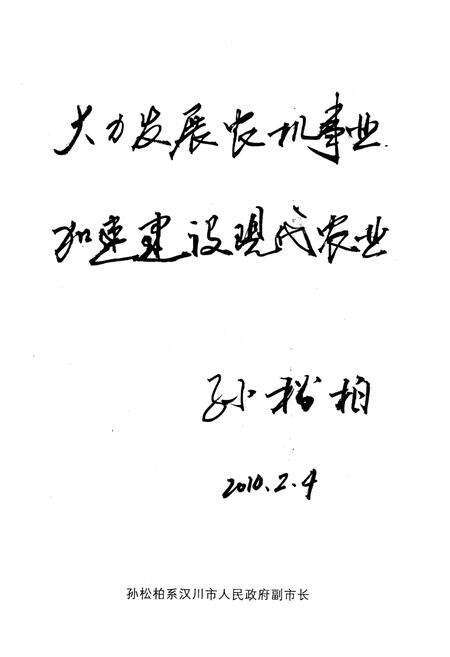 大力发展农机事业
加速建设现代农业
孙松柏
2010.2.4
孙松柏系汉川市人民政府副市长